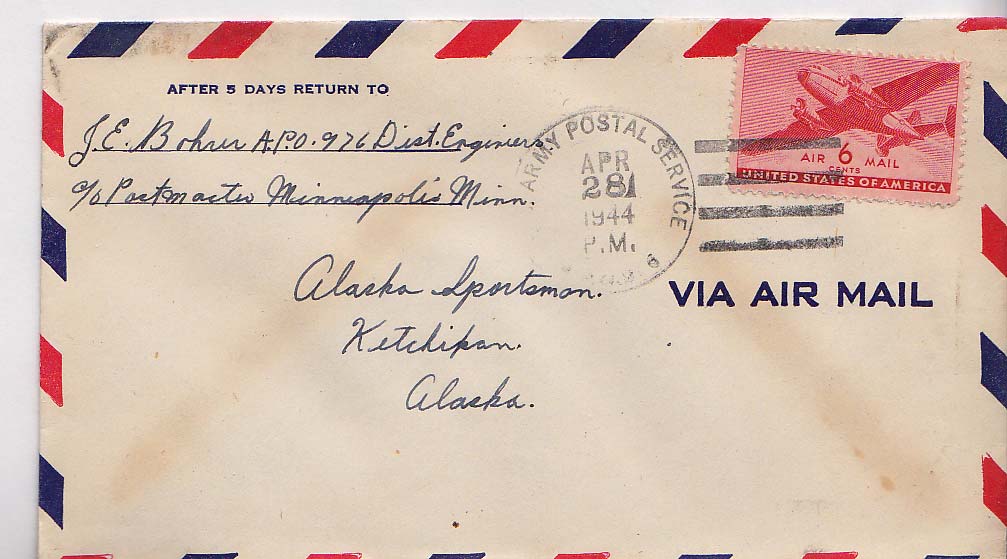 AFTER 5 DAYS RETURN TO
J.E. Bohrer A.P.O. 976 Dist. Engineers
c/o Postmaster Minneapolis Minn.
ARMY POSTAL SERVICE
APR
28
1944
P.M.
6
AIR 6 MAIL
CENTS
UNITED STATES OF AMERICA
VIA AIR MAIL
Alaska Sportsman.
Ketchikan.
Alaska.